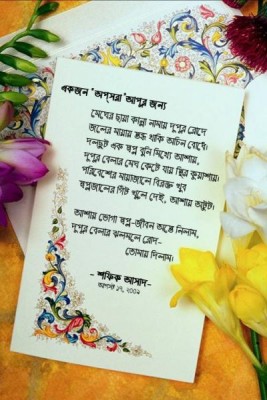 একজন 'অপ্সরা' আপুর জন্য
মেঘের ছায়া কান্না নামায় দুপুর রোদে
জলের মায়ায় স্তব্ধ থাকি অচিন বোধে।
দলছুট এক স্বপ্ন বুনি মিথ্যে আশায়,
দুপুর বেলার মেঘ কেটে যায় স্থির কুয়াশায়।
পরিবেশের মায়াজালে বিরক্ত খুব
স্বপ্নজালের গিঁট খুলে দেই, আশায় অটুট।
আশায় ভোগা স্বপ্ন-জীবন অন্তে নিলাম,
দুপুর বেলার ঝলমলে রোদ-
তোমায় দিলাম।
- শফিক আসাদ-
আগস্ট ১৭, ২০০৯